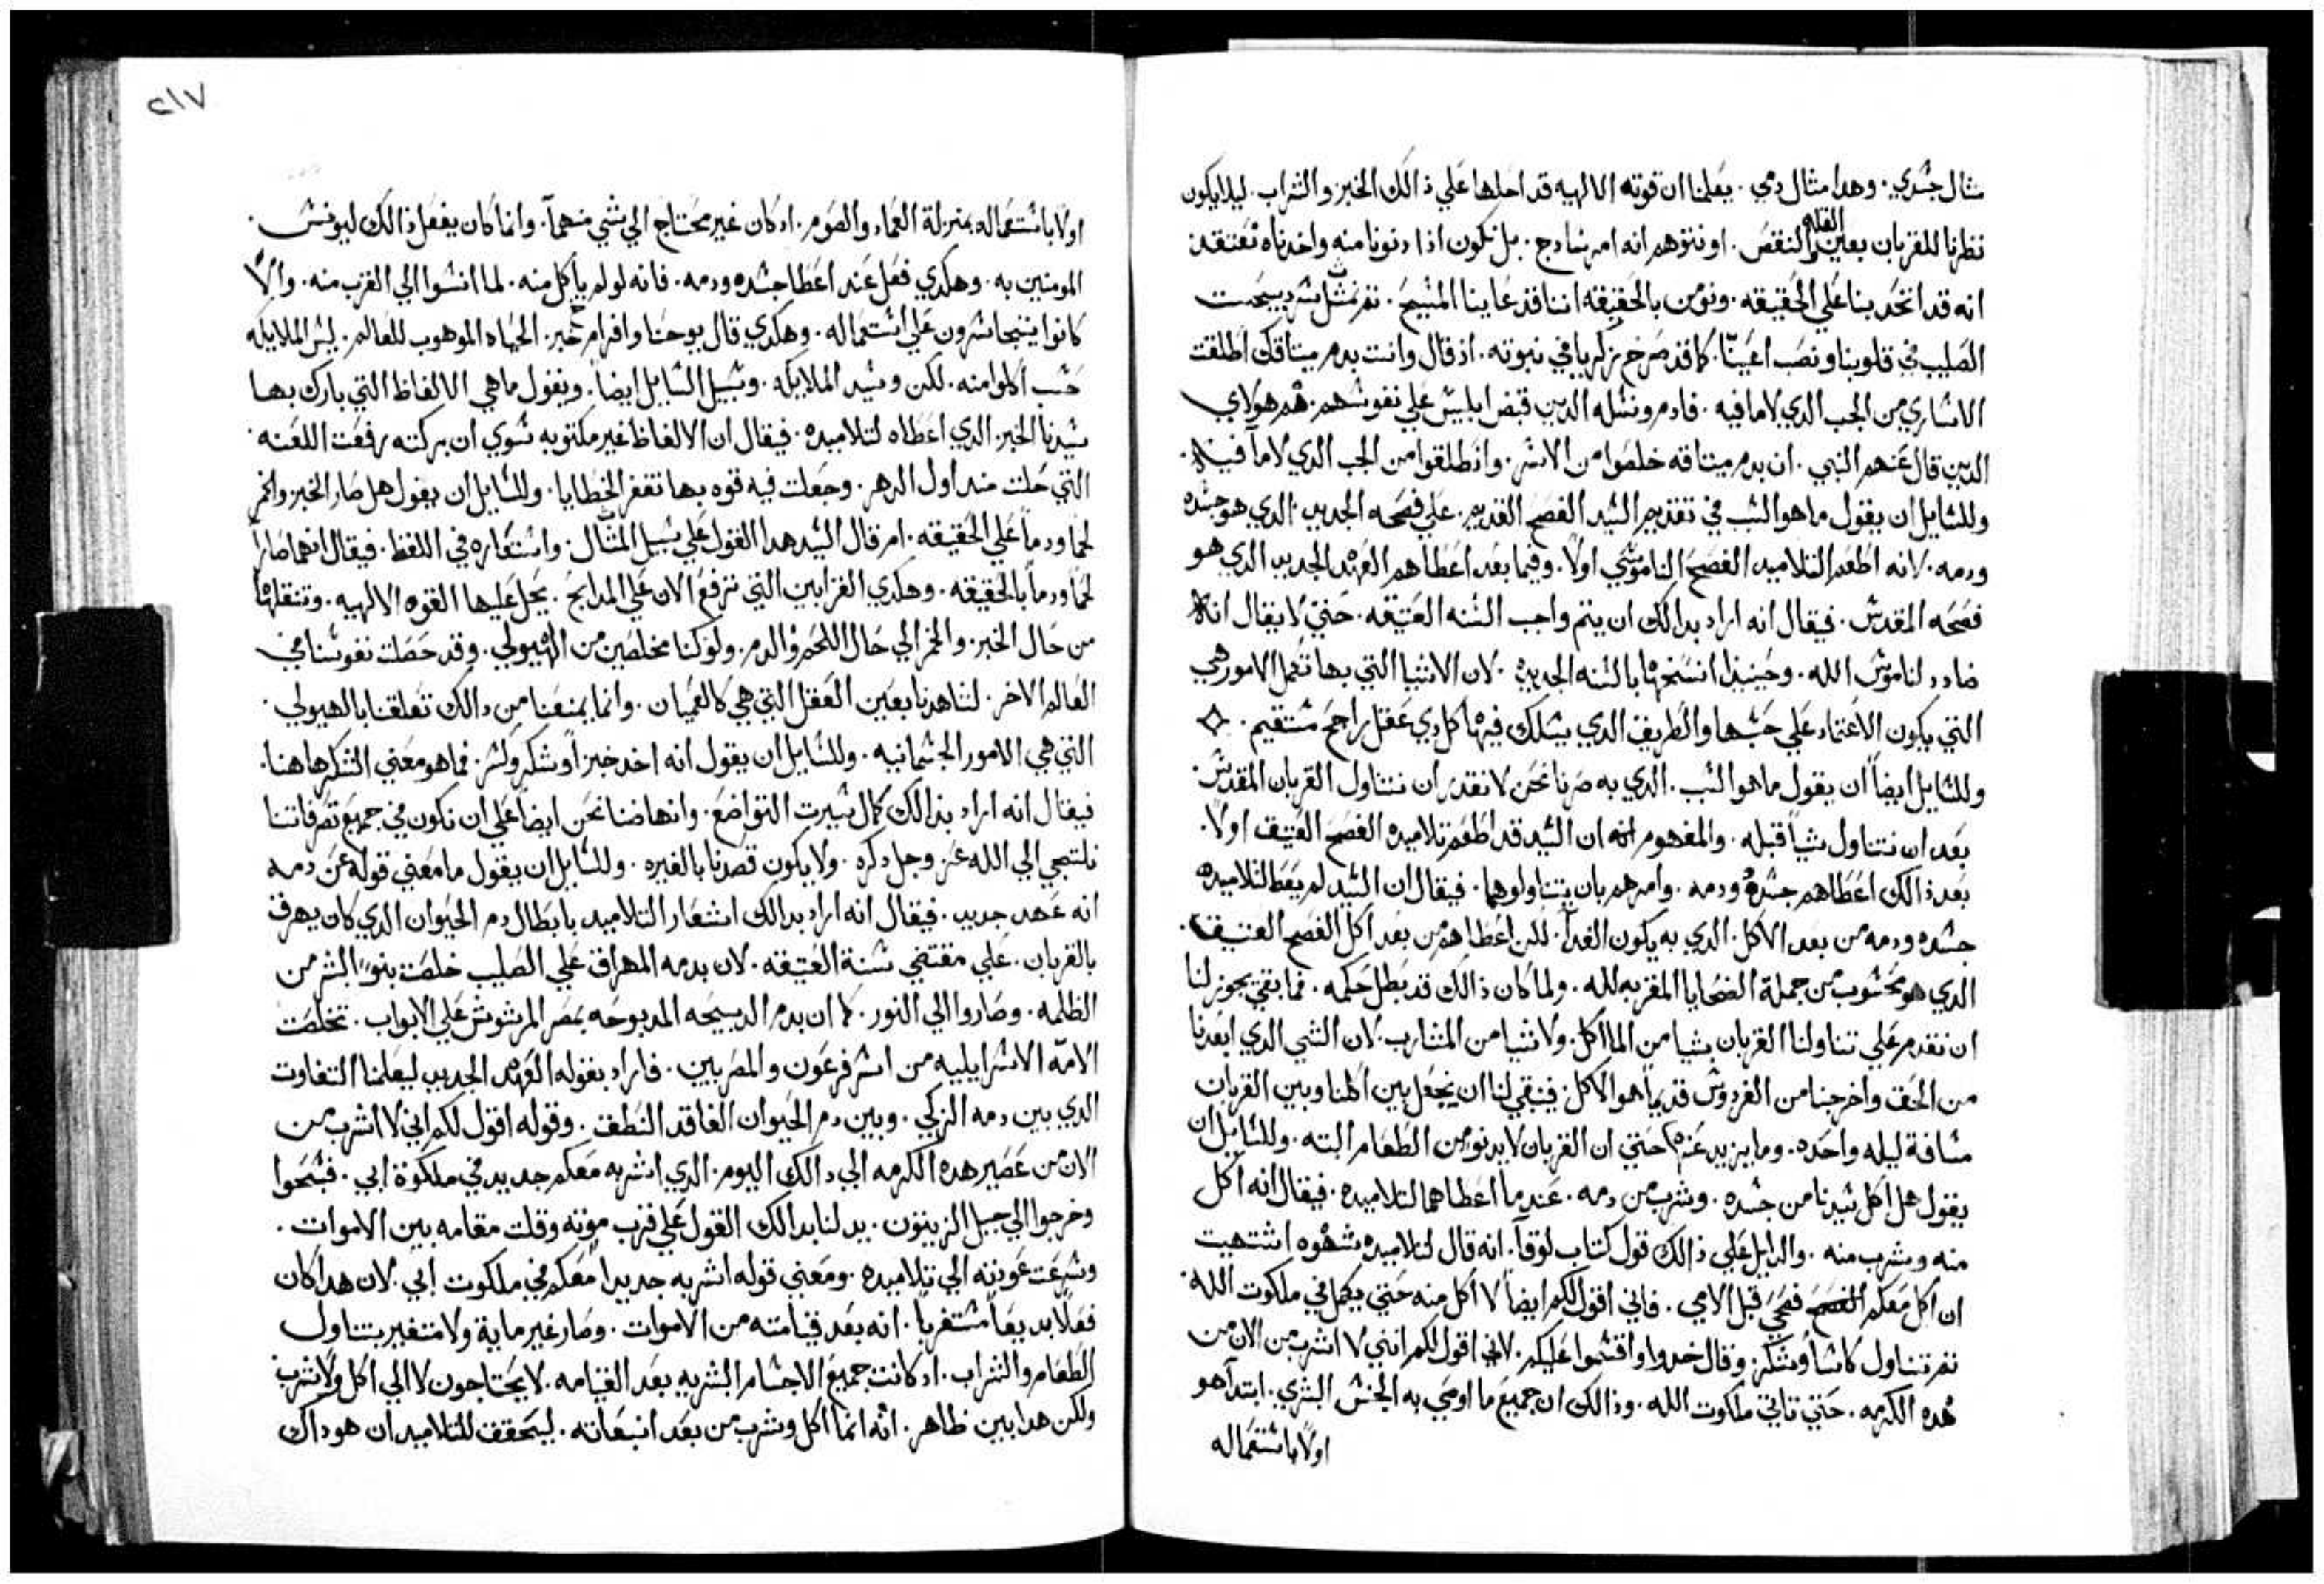 مثال جسدي. وهدا مثال دمي. يعلمنا ان قوته الالهيه قد احلها علي ذالك الخبز والشراب. ليلا يكون
نظرنا للقربان بعين القله والنقص. او نتوهم انه امر سادج. بل نكون اذا دنونا منه واخدناه نعتقد
انه قد اتحد بنا علي الحقيقه. ونومن بالحقيقه اننا قد عاينا المسيح. ثم نمثل
الصليب في قلوبنا ونصب اعيننا. كما قد صرخ زكريا في نبوته. اذ قال وانت بدم ميتاقك اطلقت
الاساري من الجب الدي لا ما فيه. فادم ونسله الدين قبض ابليس علي نفوسهم. هم هولاي
الدين قال عنهم النبي. ان بدم ميتاقه خلصوا من الاسر. وانطلقوا من الجب الدي لا ما فيه.
وللسايل ان يقول ما هو السبب في تقديم السيد الفصح القديم. علي فصحه الجديد. الدي هو جسده
ودمه. لانه اطعم التلاميد الفصح الناموسي اولا. وفيما بعد اعطاهم العهد الجديد الدي هو
فصحه المقدس. فيقال انه اراد بدالك ان يتم واجب السنه العتيقه. حتي لا يقال انه
ضادد لناموس الله. وحينيذ انسخها بالسنه الجديده. لان الاشيا التي بها تكمل الامور هي
التي يكون الاعتماد علي حبها والطريق الدي يسلك فيها كل دي عقل راجح مستقيم.
وللسايل ايضاً ان يقول ما هو السبب. الدي به صرنا نحن لا نقدر ان نتناول القربان المقدس.
بعد ان نتناول شياً قبله. والمفهوم انه ان السيد قد اطعم تلاميده الفصح العتيق اولا.
بعد ذالك اعطاهم جسده ودمه. وامرهم بان يتناولوهما. فيقال ان السيد لم يعط لتلاميده
جسده ودمه من بعد الاكل. الدي به يكون الغدا. لكن اعطاهم من بعد اكل الفصح العتيق.
الدي هو محسوب من جملة الضحايا المقربه لله. ولما كان ذالك قد بطل حكمه. فما بقي يجوز لنا
ان نقدم علي تناولنا القربان شيا من الماكل. ولا شيا من المشارب. لان الشي الدي ابعدنا
من الحق واخرجنا من الفردوس قديماً هو الاكل. فينبغي لنا ان نجعل بين اكلنا وبين القربان
مسافة ليله واحده. وما يزيد عنها حتي ان القربان لا يدنو من الطعام البته. وللسايل ان
يقول هل اكل سيدنا من جسده. وشرب من دمه. عند ما اعطاهما لتلاميده. فيقال انه اكل
منه وشرب منه. والدليل علي ذالك قول كتاب لوقا. انه قال لتلاميده شهوه اشتهيت
ان اكل معكم فصحي قبل الامي. فاني اقول لكم ايضاً لا اكل منه حتي يكمل في ملكوت الله.
ثم تناول كاساً وشكر. وقال خدوا واقتسموا عليكم. لاني اقول لكم انني لا اشرب من الان من
هده الكرمه. حتي تاتي ملكوت الله. وذالك ان جميع ما اوصي به الجنس البشري. ابتدا هو
اولاً باستعماله
٢١٧
اولاً باستعماله بمنزلة العماد والصوم. اد كان غير محتاج الي شي منهما. وانما كان يفعل ذالك ليونس.
المومنين به. وهكدي فعل عند اعطا جسده ودمه. فانه لو لم ياكل منه. لما انسوا الي القرب منه. والا
كانوا يتجاسرون علي استعماله. وهكدي قال يوحنا وافرام خبز. الحياه الموهوب للعالم. ليس الملايكه
حسب اكلوا منه. لكن وسيد الملايكه. وسبيل السايل ايضاً. ويقول ما هي الالفاظ التي بارك بها
سيدنا الخبز. الدي اعطاه لتلاميده. فيقال ان الالفاظ غير مكتوبه سوي ان بركته رفعت اللعنه.
التي حلت مند اول الدهر. وجعلت فيه قوه بها تغفر الخطايا. وللسايل ان يقول هل صار الخبز والخمر
لحماً ودماً علي الحقيقه. ام قال السيد هدا القول علي سبيل المثال. واستعاره في اللفظ. فيقال انهما صارا
لحماً ودماً بالحقيقه. وهكدي القرابين التي ترفع الان علي المدابح. يحل عليها القوه الالهيه. وتنقلها
من حال الخبز. والخمر الي حال اللحم والدم. ولو كنا مخلصين من الهيولي. وقد حصلت نفوسنا في
العالم الاخر. لشاهدنا بعين العقل التي هي كالعميان. وانما يمنعنا من دالك تعلقنا بالهيولي.
التي هي الامور الجسمانيه. وللسايل ان يقول انه اخد خبزاً وشكر وكسر. فما هو معني الشكر هاهنا.
فيقال انه اراد بذالك كمال سيرت التواضع. وانهاضنا نحن ايضاً علي ان نكون في جميع تصرفاتنا
نلتجي الي الله عز وجل دكره. ولا يكون قصدنا بالغيره. وللسايل ان يقول ما معني قوله عن دمه
انه عهد جديد. فيقال انه اراد بدالك اشعار التلاميد بابطال دم الحيوان الدي كان يهرق
بالقربان. علي مقتضي سنة العتيقه. لان بدمه المهراق علي الصليب خلصت بنو البشر من
الظلمه. وصاروا الي النور. كما ان بدم الدبيحه المدبوحه بمصر المرشوش علي الابواب. تخلصت
الامة الاسراييليه من اسر فرعون والمصريين. فاراد بقوله العهد الجديد ليعلمنا التفاوت
الدي بين دمه الزكي. وبين دم الحيوان الفاقد النطق. وقوله اقول لكم اني لا اشرب من
الان من عصير هده الكرمه الي دالك اليوم. الدي اشربه معكم جديد في ملكوة ابي. فسبحوا
وخرجوا الي جبل الزيتون. يدلنا بدالك القول علي قرب موته وقلت مقامه بين الاموات.
وسرعت عودته الي تلاميده. ومعني قوله اشربه جديداً معكم في ملكوت ابي. لان هدا كان
فعلاً بديعاً مستغرباً. انه بعد قيامته من الاموات. وصار غير ماية ولا متغير بتناول
الطعام والشراب. اد كانت جميع الاجسام البشريه بعد القيامه. لا يحتاجون لا الي اكل ولا شرب
ولكن هدا بين ظاهر. انه انما اكل وشرب من بعد انبعاته. ليتحقق للتلاميد ان هو داك